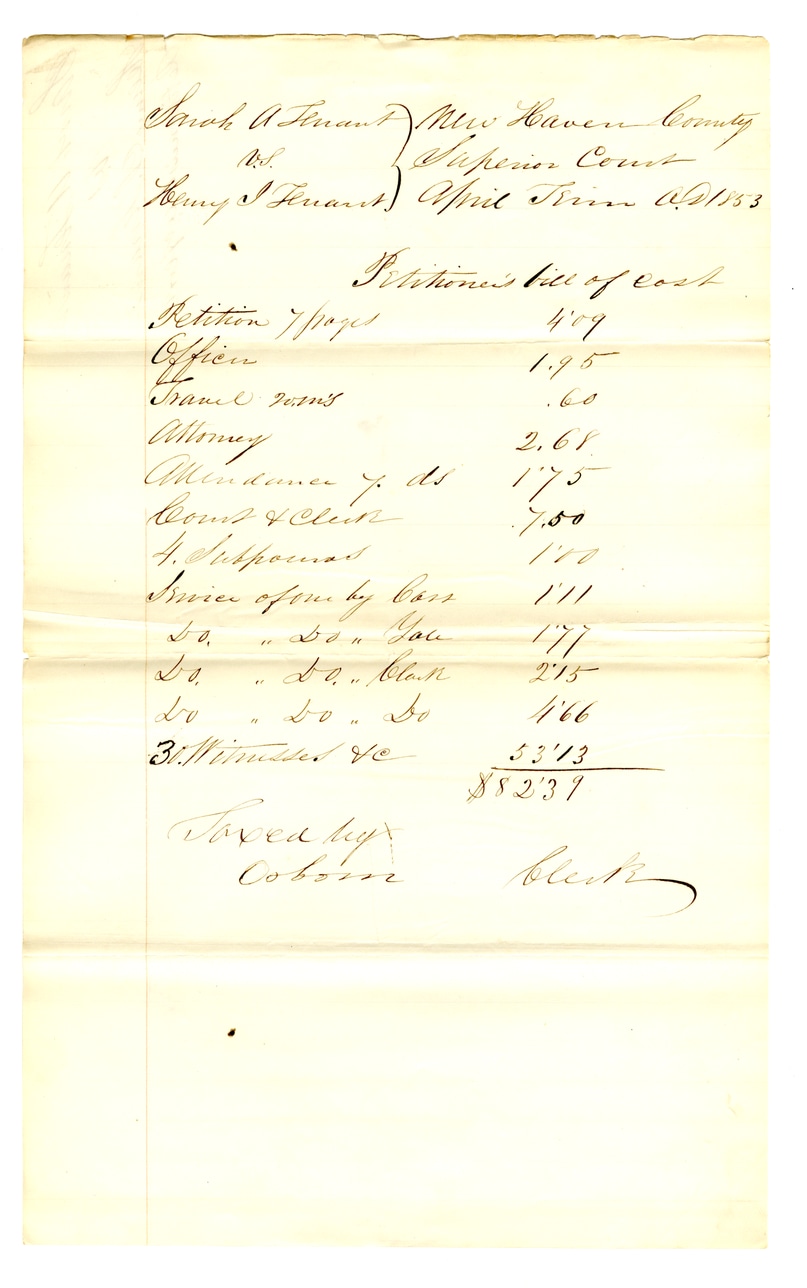 Sarah A Tenant } New Haven County
vs. } Superior Court
Henry I Tenant } April Term A.D 1853
Petitioner's bill of cost
Petition 7 pages 4'09
Officer 1.95
Travel 20.m's .60
Attorney 2.68
Attendance 7. ds 1'75
Court & Clerk 7.50
4. Subpoenas 1'00
Service of one by Cass 1'11
Do. " Do " Yale 1'77
Do. " Do. " Clark 2'15
Do " Do " Do 4'66
30. Witnesses &c 53'13
$82'39
Taxed by
Osborn Clerk